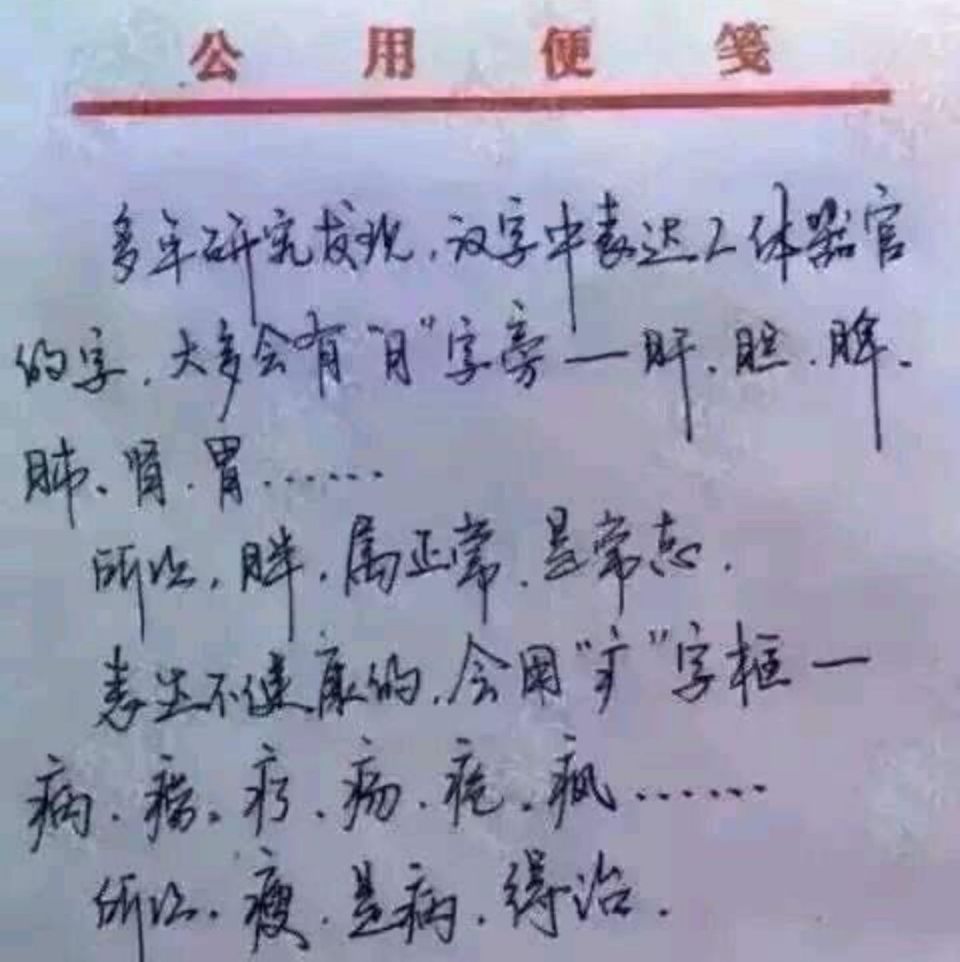 公用便笺
多年研究发现,汉字中表达人体器官
的字,大多会有“月”字旁—肝、胆、脾、
肺、肾、胃……
所以,胖,属正常,是常态.
表达不健康的,会用“疒”字框—
病、瘤、疗、疡、疮、疯……
所以,瘦,是病,得治.